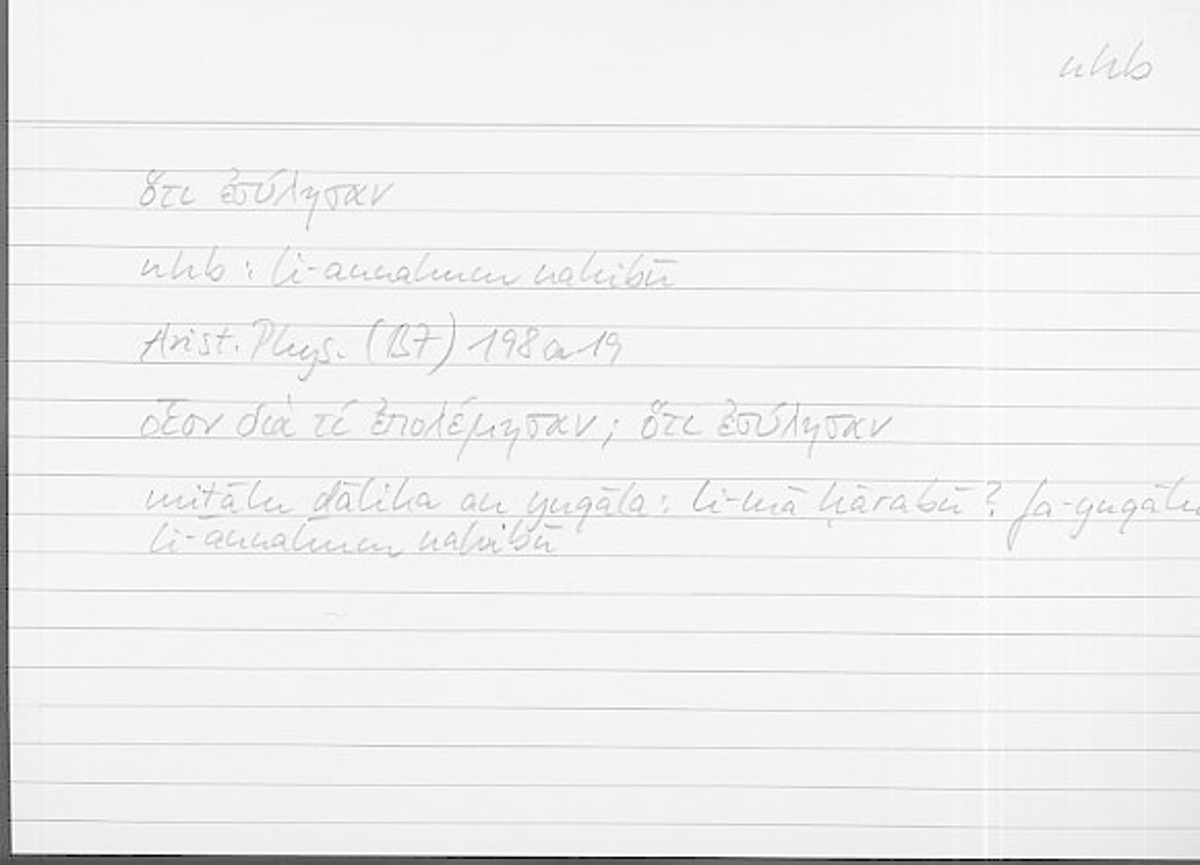 nhb
ὅτι ἐσύλησαν
nhb : li-annahum nahibū
Arist. Phys. (B7) 198 a 19
οἷον διὰ τί ἐπολέμησαν; ὅτι ἐσύλησαν
miṯālu ḏālika an yuqāla: li-mā ḥārabū? fa-yuqālu
li-annahum nahibū